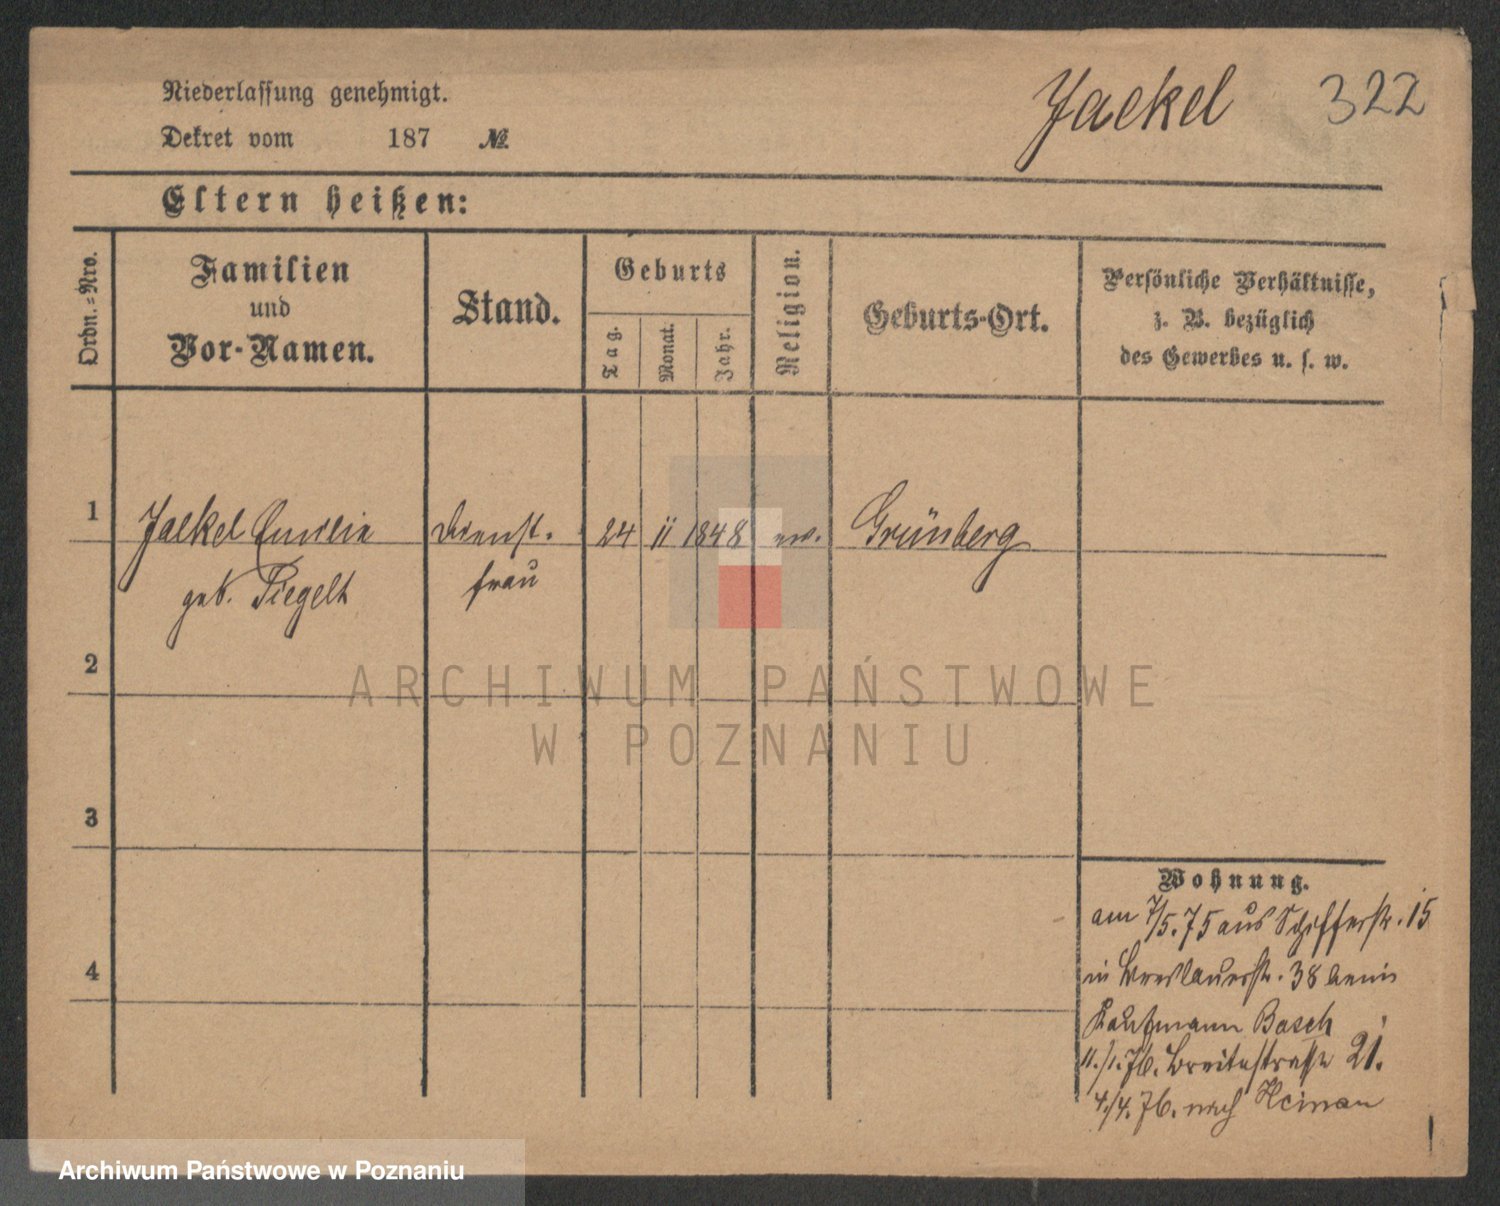 Niederlassung genehmigt.
Jaekel
322
Dekret vom 187 №
Eltern heißen:
Ordn.-Nro.
Familien
und
Vor-Namen.
Stand.
Geburts
Tag.
Monat.
Jahr.
Religion.
Geburts-Ort.
Persönliche Verhältnisse,
z. B. bezüglich
des Gewerbes u. s. w.
1 Jaekel Emilie Dienst. 24 11 1848 ev. Grünberg
geb. Piegelt frau
2
3
4
Wohnung.
am 7/5. 75 aus Schifferstr. 15
in Breslauerstr. 38 beim
Kaufmann Basch
11./1. 76. Breitestraße 21.
4./4. 76. nach
ARCHIWUM PAŃSTWOWE
W POZNANIU
Archiwum Państwowe w Poznaniu